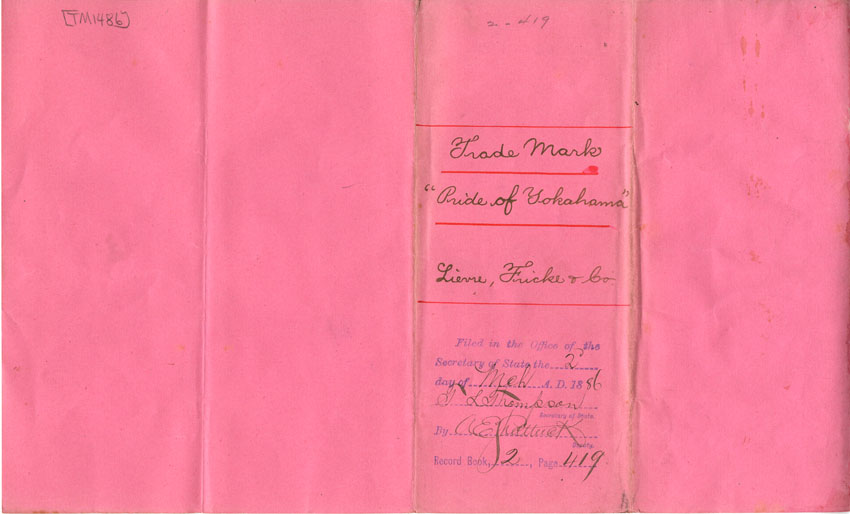 [TM1486]
2-419
Trade Mark
"Pride of Yokahama"
Lievre, Fricke & Co
Filed in the Office of the
Secretary of State the 2
day of Mch A. D. 1886
T L Thompson
Secretary of State.
By
Deputy.
Record Book, 2, Page 419